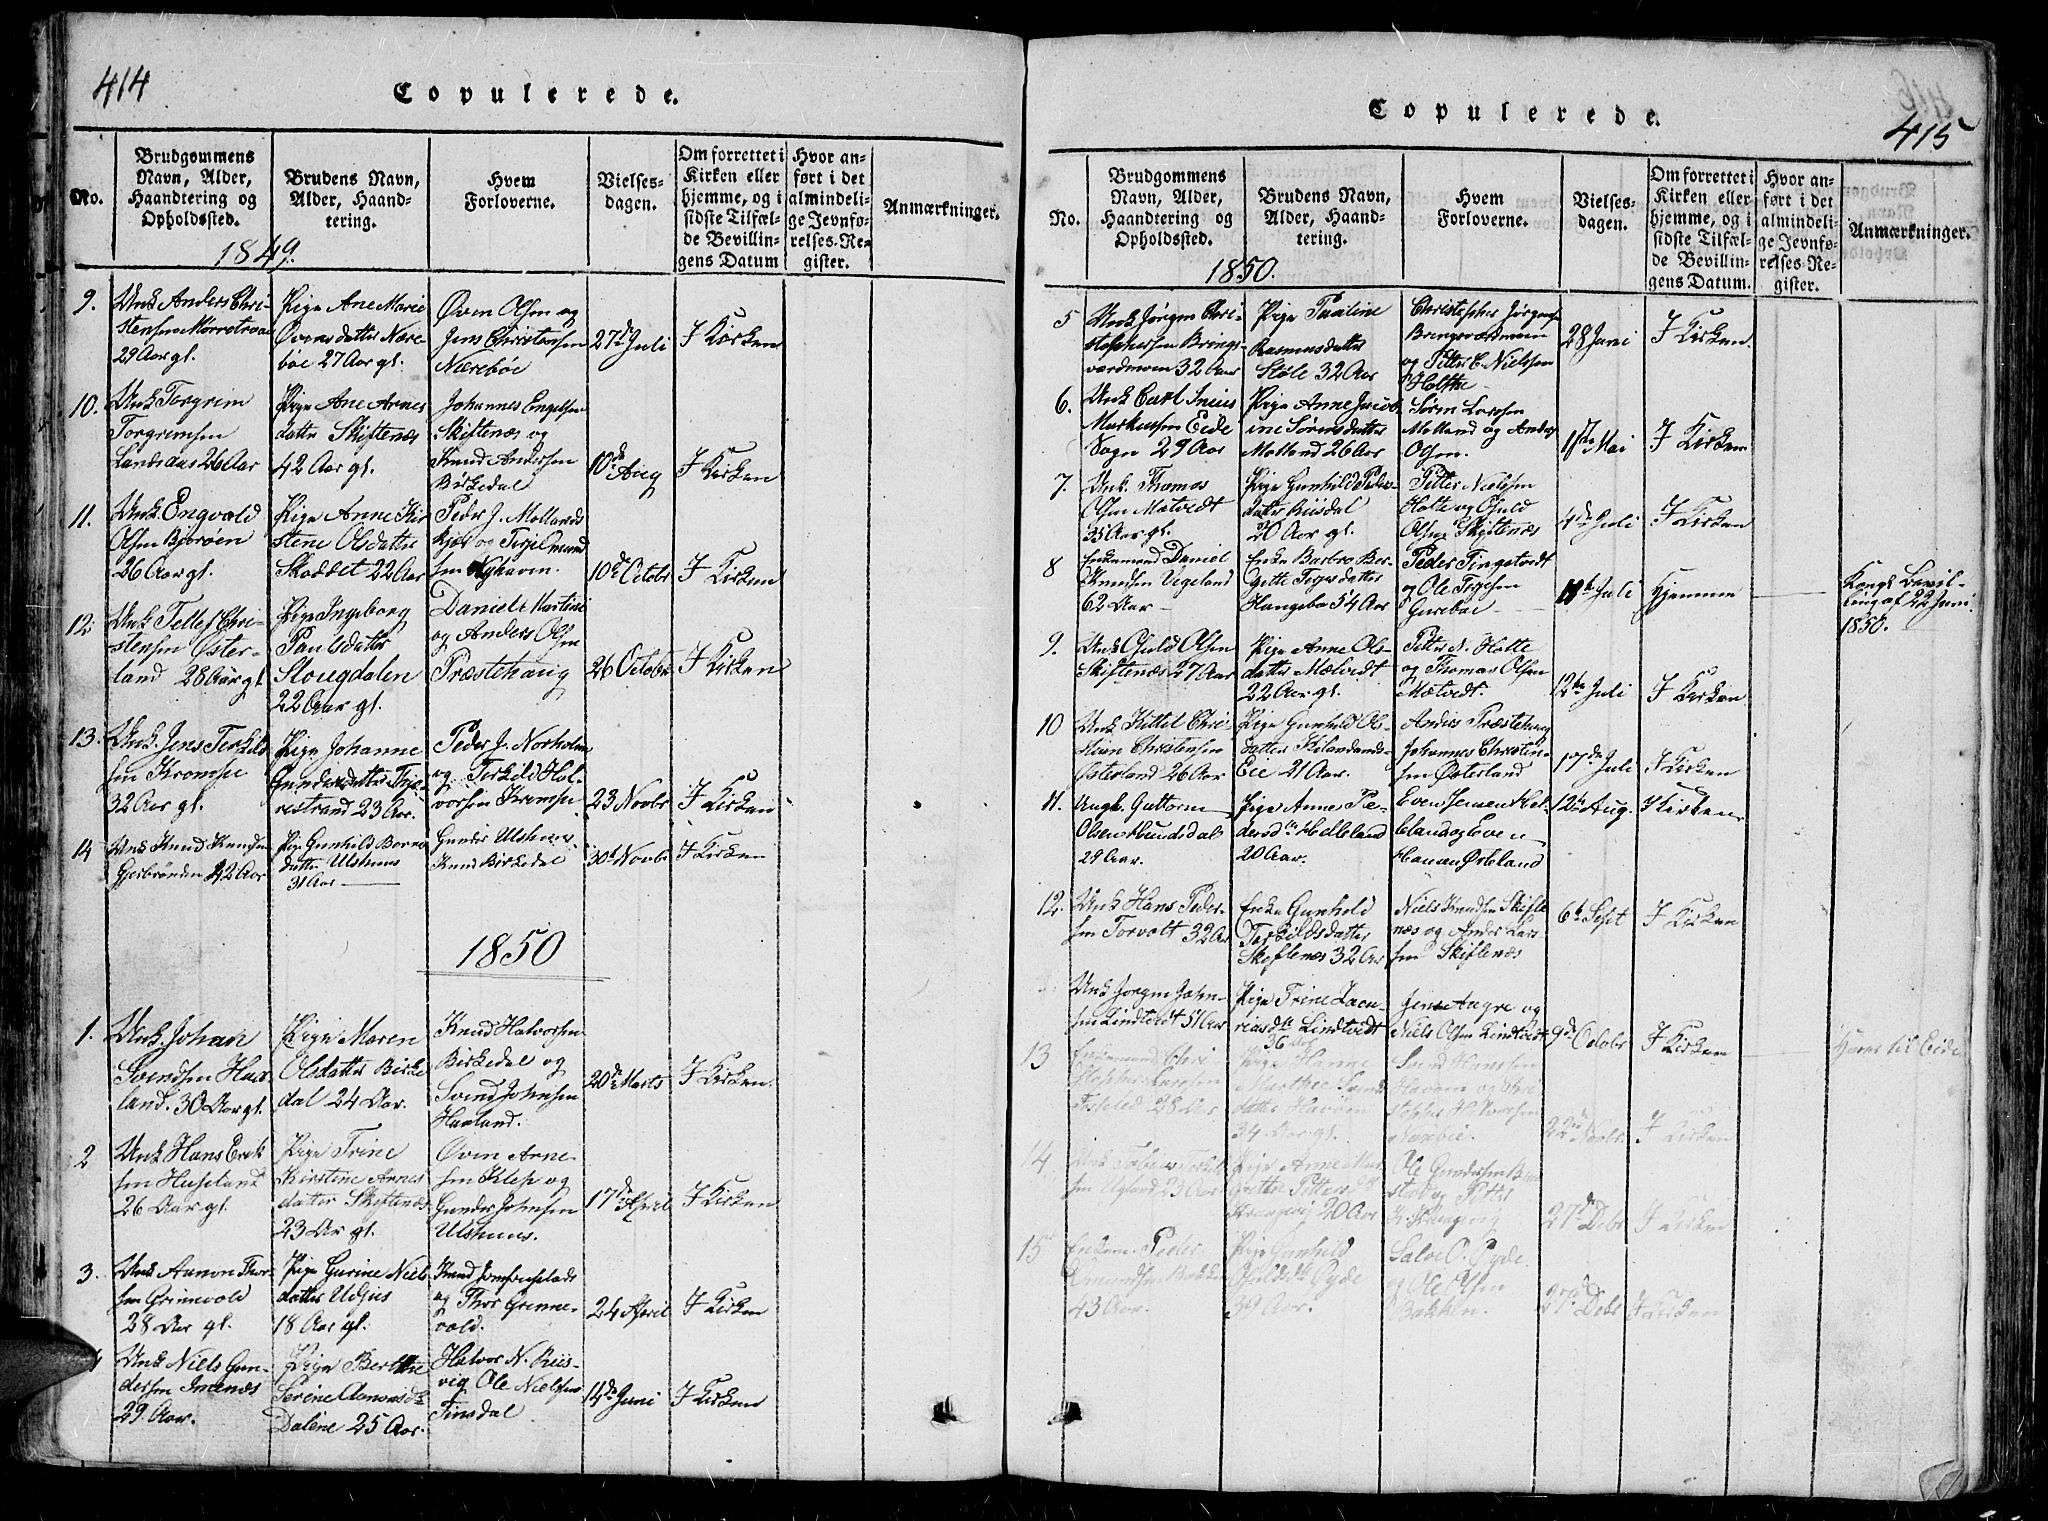 414
Copulerede.
No.
Brudgommens
Navn, Alder,
Haandtering og
Opholdssted.
Brudens Navn,
Alder, Haand-
tering.
Hvem
Forloverne.
Vielses-
dagen.
Om forrettet i
Kirken eller
hjemme, og i
sidste Tilfæl-
de Bevillin-
gens Datum
Hvor an-
ført i det
almindeli-
ge Jevnfø-
relses-Re-
gister.
Anmærkninger.
1849.
9.
Unk Anders Chri-
stensen
29 Aar gl.
Pige Ane Marie
Ovensdatter Nære-
bøe 27 Aar gl.
Øven Olsen og
Jens Christensen
Nærebøe
27de Juli
I Kirken
10.
Unk Torgrim
Torgrimsen
Landsdas 26 Aar
Pige Ane Arnes
datter Skiftenæs
42 Aar gl.
Johannes Engelsen
Skiftenæs og
Knud Andersen
Birkedal
10de Aug
I Kirken
11.
Unk. Engvold
Olsen Bjorøen
26 Aar gl.
Pige Anne Kir
stine Olsdatter
Skoddet 22 Aar
Peder J. Mollands
kjær og
sen Nyhaven.
10de Octobr
I Kirken
12.
Unk Tellef Chri-
stensen Øster-
land 28 Aar gl
Pige Ingeborg
Paulsdatter
Slougdalen
22 Aar gl.
Daniel Martini
og Anders Olsen
Præstehaug
26 Octobr
I Kirken
13.
Unk. Jens Terkild
sen Kromse
32 Aar gl.
Pige Johanne
Gundersdatter
restrand 23 Aar.
Peder J. Norholm
og Terkild Hal-
vorsen Kromse
23 Novbr
I Kirken
14
Unk Knud Knudsen
Gjerbrønden 42 Aar
Pige Gunhild
datter Ulshuus
31 Aar
Gunder Ulshuus
Knud Birkedal
30t Novbr
I Kirken
1850
1.
Unk. Johan
Svendsen Haa
land. 30 Aar gl.
Pige Maren
Olsdatter Birke
dal 24 Aar.
Knud Halvorsen
Birkedal og
Svend Johnsen
Haaland.
20de Marts
I Kirken.
2
Unk Hans Erik
sen Huseland
26 Aar gl.
Pige Trine
Kirstine Arnes
datter Skiftenæs
23 Aar gl.
Øven Arne-
sen Klep og
Gunder Johnsen
Ulshuus.
17de April
I Kirken
3.
Unk Aanon Thor
sen Grimevold
28 Aar gl.
Pige Gurine Niels
datter Udjus
18 Aar gl.
Knud
og Thor Grimme-
vold.
24 April
I Kirken
4
Unk Niels Gun-
dersen Imenæs
29 Aar.
Pige Berthe
Serine Aanonsd.
Dalene 25 Aar.
Halvor N. Riis-
vig Ole Nielsen
Tinsdal
14de Juni
I Kirken
415
Copulerede.
No.
Brudgommens
Navn, Alder,
Haandtering og
Opholdssted.
Brudens Navn,
Alder, Haand-
tering.
Hvem
Forloverne.
Vielses-
dagen.
Om forrettet i
Kirken eller
hjemme, og i
sidste Tilfæl-
de Bevillin-
gens Datum.
Hvor an-
ført i det
almindeli-
ge Jevnfø-
relses-Re-
gister.
Anmærkninger.
1850.
5
Unk Jørgen Chri-
stophersen Brings-
værdmoen 32 Aar
Pige Pauline
Rasmusdatter
Støle 32 Aar
Christopher Jørgens
Bringsværdmoen
og Petter C. Nielsen
Holthe
28 Juni
I Kirken.
6.
Unk Carl Inius
Markussen Eide
Sogn 29 Aar
Pige Anne Jacob
ine Sørensdatter
Molland 26 Aar
Søren Larsen
Molland og Anders
Olsen.
1ste Mai
I Kirken
7.
Unk. Thomas
Olsen Mætvedt
35 Aar gl.
Pige Gunhild Peders
datter Riisdal
20 Aar gl.
Petter Nielsen
Holte og Ofuld
Olsen Skiftenæs
4de Juli
I Kirken
8
Enkemand Daniel
Knudsen Ugeland
62 Aar
Enke Barbro Ber-
gethe Terjesdatter
Haugebo 54 Aar
Peder Tingstvedt
og Ole Terjesen
Gurebøe
11te Juli
Hjemme
Kongl Bevil-
ling af 22 Juni
1850.
9.
Unk Ofuld Olsen
Skiftenæs 27 Aar
Pige Anne Ols-
datter Mætvedt
22 Aar gl.
Petter N. Holte
og Thomas Olsen
Mætvedt.
12te Juli
I Kirken
10
Unk Kittel Chri-
stian Christensen
Østerland 26 Aar
Pige Gunhild Ols-
datter Kilandands-
Eie 21 Aar.
Anders Præstehaug
Johannes Christen-
sen Østerland
17de Juli
I Kirken
11.
Ungk. Guttorm
Olsen Hundsdal
29 Aar.
Pige Anne Pe-
dersdtr Helleland
20 Aar.
Even Jensen Hel-
leland og Even
Hansen Østeland
12te Aug.
I Kirken
12.
Unk Hans Peder-
sen Torvolt 32 Aar
Enke Gunhild
Terkildsdatter
Skiftenæs 32 Aar
Niels Knudsen Skifte
næs og Anders Lars
sen Skiftenæs
6te Sept
I Kirken
Unk Jørgen John-
sen Lindtvedt 51 Aar
Pige Trine Zaca-
riasdtr Lindtvedt
36 Aar
Jens Augre og
Niels Olsen Lindtvedt
9de Octobr
I Kirken
13
Enkemand Chri
stopher Larsen
28 Aar
Pige Hanne
Marthe Svends
datter Havøen
34 Aar gl.
Svend Hansen
Havøen og Chri
stopher Halvorsen
Nærebøe.
22de Novbr
I Kirken
Hører til Eide
14.
Unk Tobias Terkel
sen Ugland 23 Aar
Pige Anne Mar
grethe Pettersdtr
20 Aar
Ole Gundersen
stad og Petter
27de Debr
I Kirken
15
Enkem. Peder
Omundsen Bakken
43 Aar.
Pige Gunhild
Ofuldsdtr Ryde
39 Aar.
Salve O. Ryde
og Ole Olsen
Bakken.
27de Debr
I Kirken